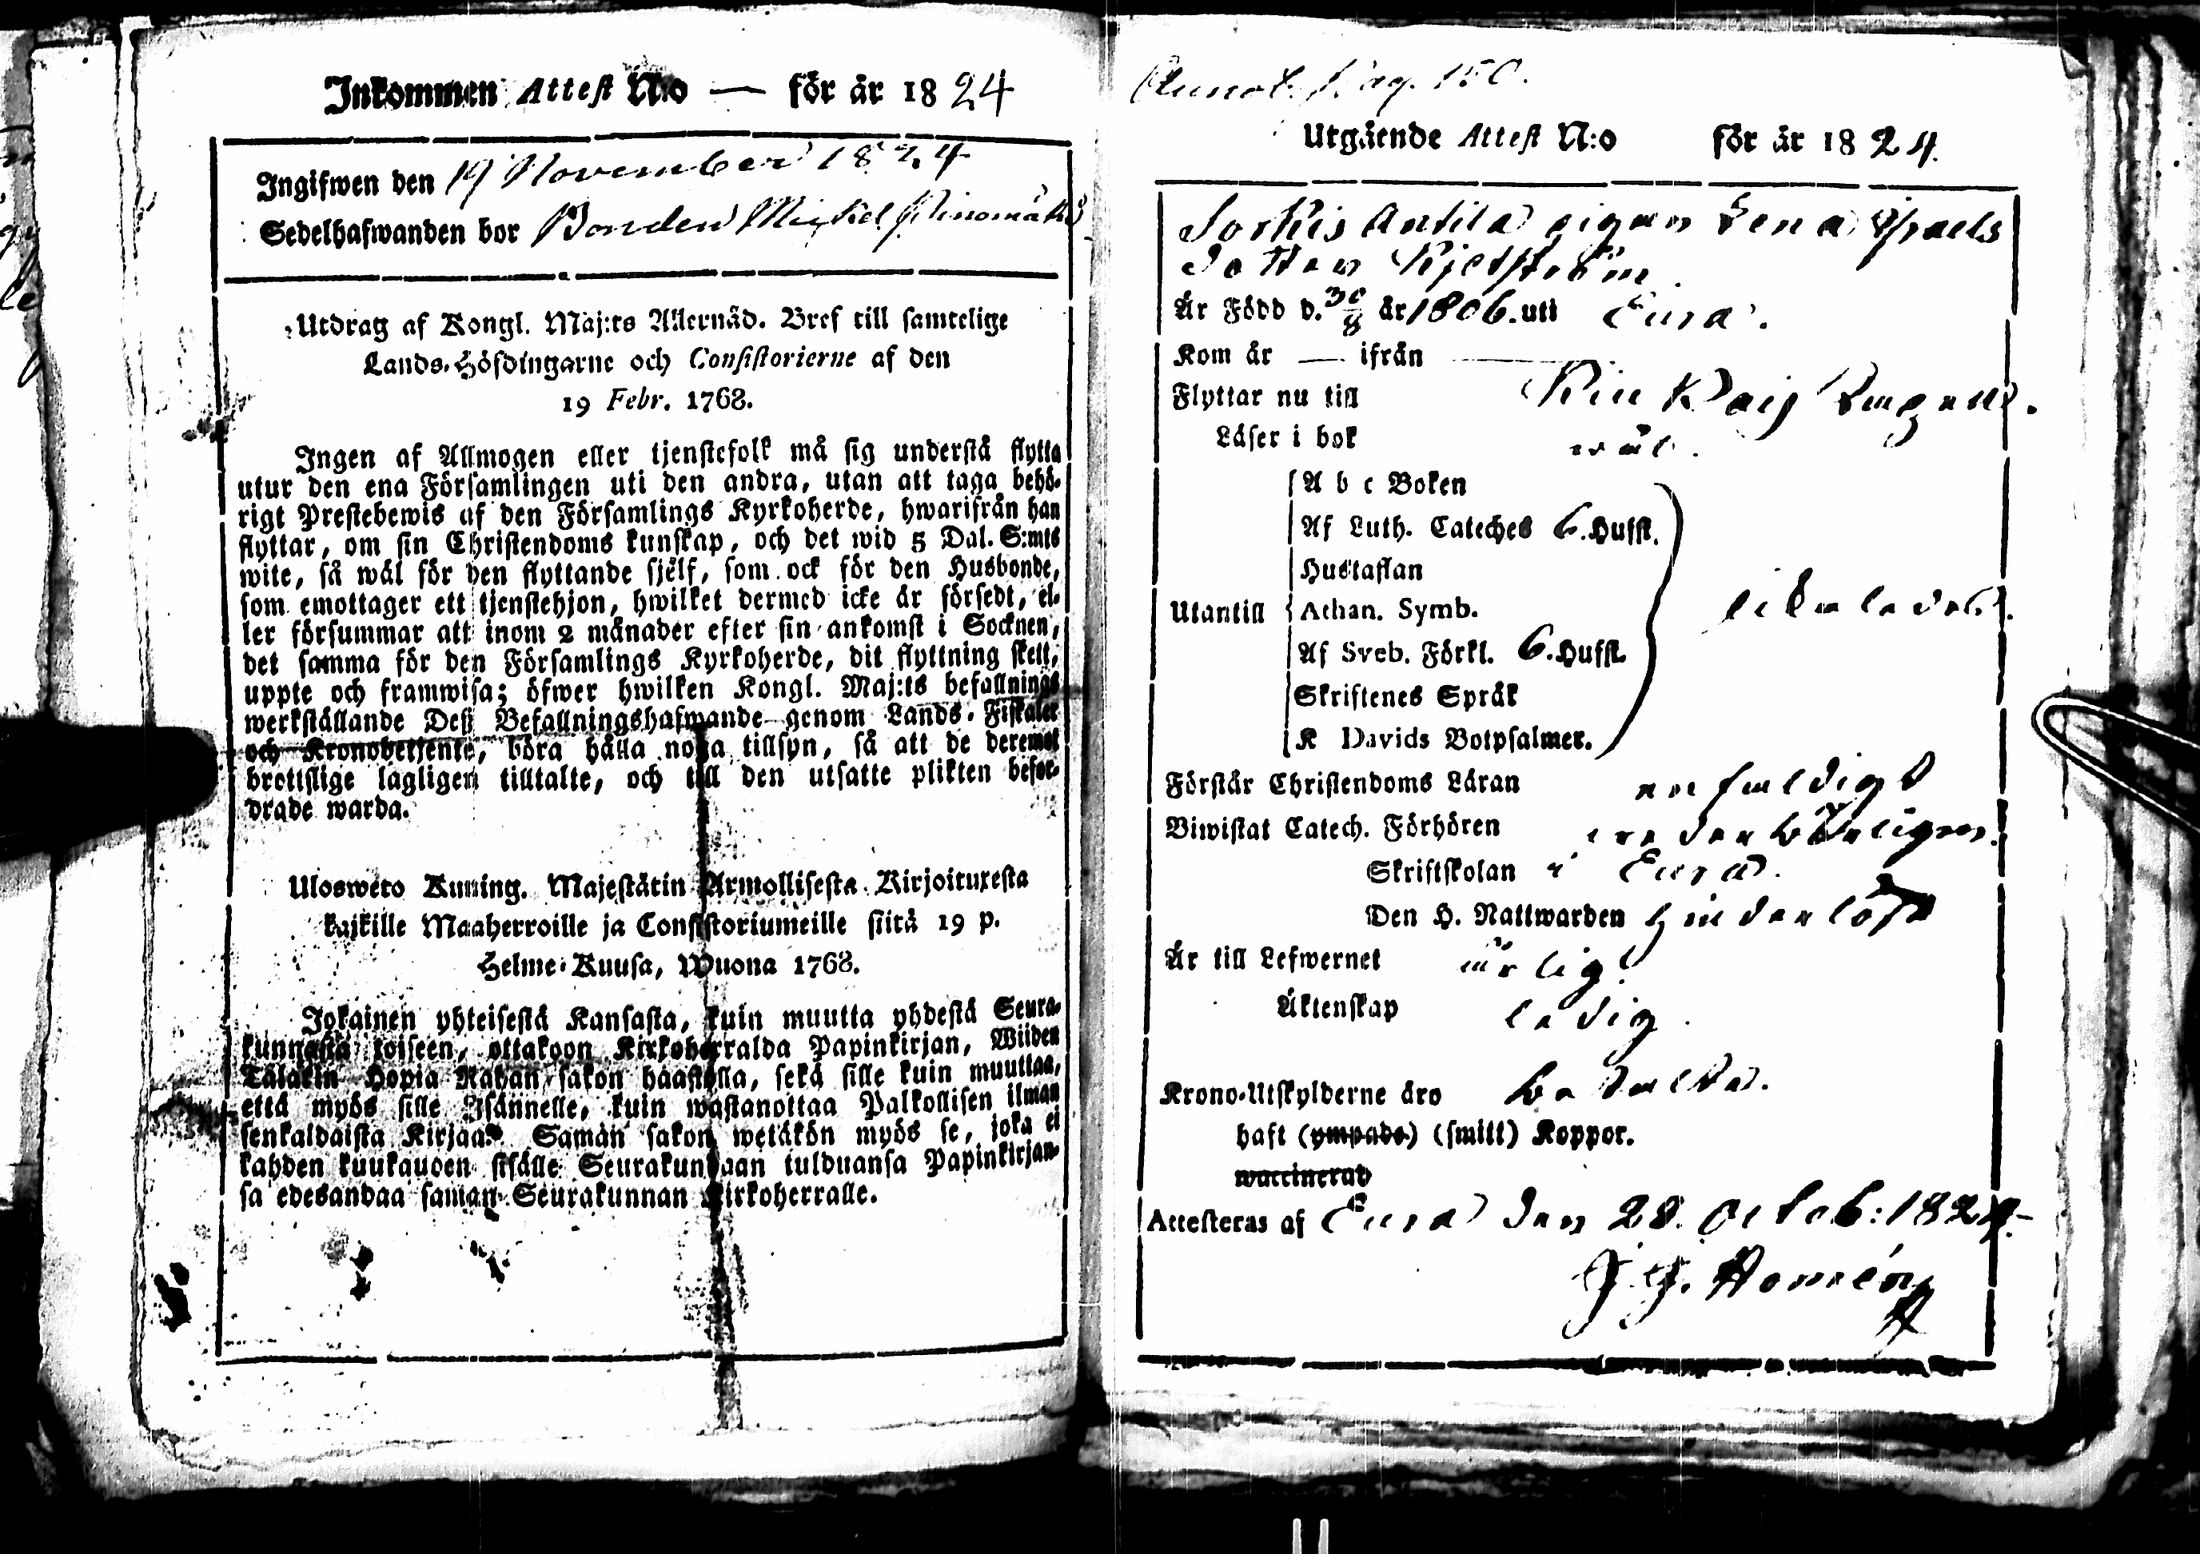 Inkommen Attest N:o — för år 1824
Ingifwen den 19 November 1824
Sedelhafwanden bor Bonden Mickel
Utdrag af Kongl. Maj:ts Allernåd. Bref till samtelige
Lands-Höfdingarne och Consistorierne af den
19 Febr. 1768.
Ingen af Allmogen eller tjenstefolk må sig understå flytta
utur den ena Församlingen uti den andra, utan att taga behö-
rigt Prestebewis af den Församlings Kyrkoherde, hwarifrån han
flyttar, om sin Christendoms kunskap, och det wid 5 Dal. S:mts
wite, så wäl för den flyttande sjelf, som ock för den Husbonde,
som emottager ett tjenstehjon, hwilket dermed icke är försedt, el-
ler försummar att inom 2 månader efter sin ankomst i Socknen,
det samma för den Församlings Kyrkoherde, dit flyttning skett,
uppte och framwisa; öfwer hwilken Kongl. Maj:ts befallnings
werkställande Dess Befallningshafwande genom Lands-Fiskaler
och Kronobetjente, böra hålla noga tillsyn, så att de deremot
brottslige lagligen tilltalte, och till den utsatte plikten befor-
drade warda.
Ulosweto Kuning. Majestätin Armollisesta Kirjoituxesta
kaikille Maaherroille ja Consistoriumeille siitä 19 p.
Helme-Kuusa, Wuona 1768.
Jokainen yhteisestä Kansasta, kuin muutta yhdestä Seura-
kunnasta toiseen, ottakoon Kirkoherralda Papinkirjan, Wiiden
Talarin Hopia Rahan sakon haastolla, sekä sille kuin muuttaa,
että myös sille Isännelle, kuin wastanottaa Palkollisen ilman
senkaldaista Kirjaa. Samän sakon wetäkön myös se, joka ei
kahden kuukauden sisälle Seurakundaan tulduansa Papinkirjan-
sa edesandaa saman Seurakunnan Kirkoherralle.
Annot. pag. 150.
Utgående Attest N:o för år 1824.
Sorkis Antila pigan Lena Israels
dotter Kjellström
Är Född d. 30/8 år 1806. uti Eura.
Kom år — ifrån —
Flyttar nu till
Läser i bok wäl.
A b c Boken
Af Luth. Cateches 6. Hufst.
Hustaflan
Utantill Athan. Symb. likaledes.
Af Sveb. Förkl. 6. Hufst.
Skriftenes Språk
K Davids Botpsalmer.
Förstår Christendoms Läran enfaldigt
Biwistat Catech. Förhören wederbörligen.
Skriftskolan i Eura.
Den H. Nattwarden hinderlöst
Är till Lefwernet ärligt
Äktenskap ledig
Krono-Utskylderne äro betalta.
haft (ympade) (smitt) Koppor.
waccinerad
Attesteras af Eura den 28. Octob: 1824.
J. J. Homén